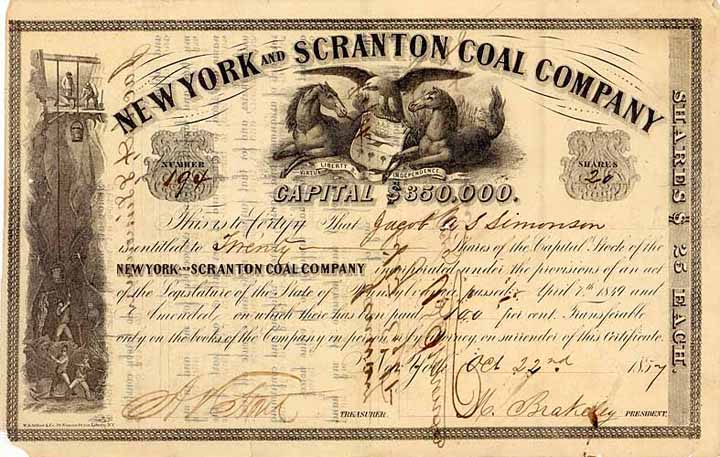 NEW YORK AND SCRANTON COAL COMPANY
VIRTUE LIBERTY INDEPENDENCE
NUMBER
194
SHARES
20
CAPITAL $350.000.
This is to Certify That Jacob A S Simonson
is entitled to Twenty Shares of the Capital Stock of the
NEW YORK AND SCRANTON COAL COMPANY incorporated under the provisions of an act
of the Legislature of the State of Pennsylvania passed April 7th 1849 and
Amended on which there has been paid 100 per cent. Transferable
only on the books of the Company in person or by Attorney, on surrender of this Certificate.
New York Oct 22nd 1857
TREASURER.
PRESIDENT.
SHARES $ 25 EACH.